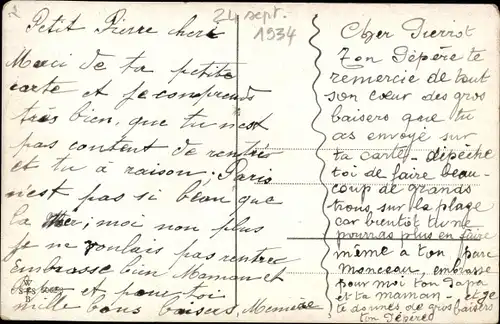 24 sept. 1934
Petit Pierre cheri
Merci de ta petite
carte et je comprends
très bien, que tu n'est
pas content de rentrer
et tu à raison; Paris
n'est pas si beau que
la Mer; moi non plus
je ne voulais pas rentrer
Embrasse bien Maman et
et pour toi
mille bons baisers, Memère
Cher Pierrot
Ton Pépère te
remercie de tout
son cœur des gros
baisers que tu
as envoyé sur
ta carte - dépêche
toi de faire beau-
coup de grands
trous sur la plage
car bientôt tu ne
pourras plus en faire
même à ton parc
Monceau, embrasse
pour moi ton Papa
et ta maman - et je
te donnes de gros baisers
ton Pépère